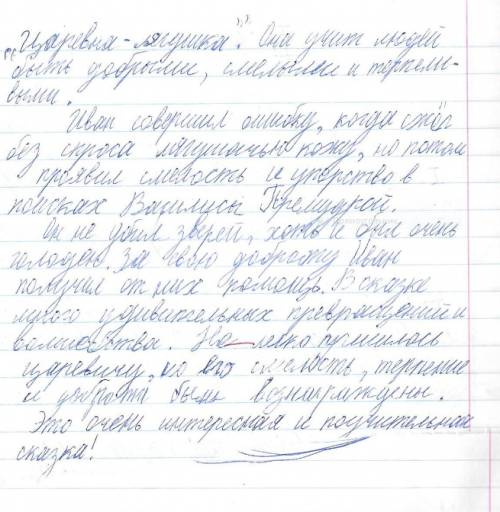 „Царевна-лягушка”. Она учит людей
быть добрыми, смелыми и терпели-
выми.
Иван совершил ошибку, когда сжёг
без спроса лягушачью кожу, но потом
проявил смелость и упорство в
поисках Василисы Премудрой.
Он не убил зверей, хоть и был очень
голоден. За свою доброту Иван
получил от них помощь. В сказке
много удивительных превращений и
волшебства. Не легко пришлось
царевичу, но его смелость, терпение
и доброта были вознаграждены.
Это очень интересная и поучительная
сказка!